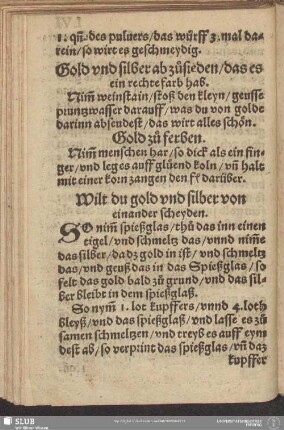 1. qñ. des puluers/das würff 3. mal da-
rein/so wirt es geschmeydig.
Gold vnd silber ab zůsieden/das es
ein rechte farb hab.
Nim̃ weinstain/stoß den kleyn/geusse
prungwasser darauff/was du von golde
darinn absendest/das wirt alles schön.
Gold zů ferben.
Nim̃ menschen har/so dick als ein fin-
ger/vnd leg es auff glüend koln/vñ halt
mit einer korn zangen den fl darüber.
Wilt du gold vnd silber von
einander scheyden.
SO nim̃ spießglas/thů das inn einen
tigel/vnd schmeltz das/vnnd nim̃e
das silber/da dz gold in ist/vnd schmeltz
das/vnd geuß das in das Spießglas/so
felt das gold bald zů grund/vnd das sil-
ber bleibt in dem spießglaß.
So nym̃ 1. lot kupffers/vnnd 4. loth
bleyß/vnd das spießglaß/vnd lasse es zů
samen schmeltzen/vnd treyb es auff eym
dest ab/so verprint das spießglas/vñ daz
kupffer
SLUB